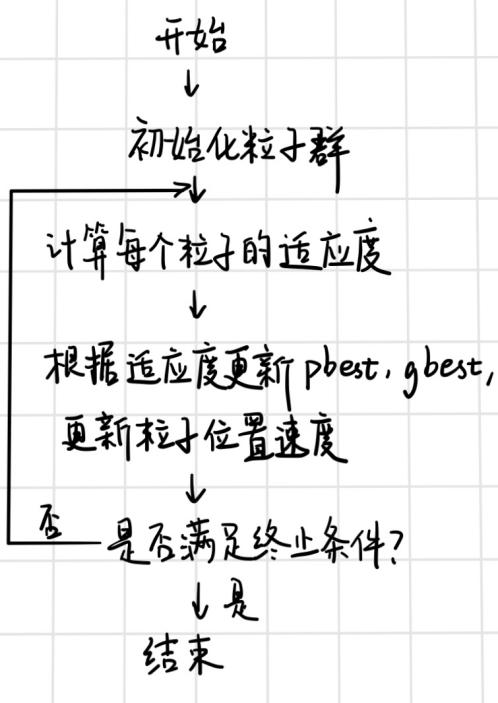 开始
初始化粒子群
计算每个粒子的适应度
根据适应度更新pbest,gbest,
更新粒子位置速度
否
是否满足终止条件?
是
结束